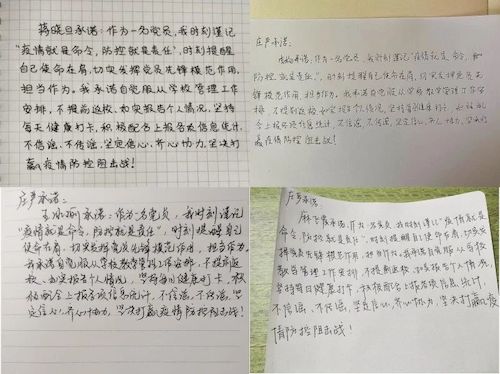 蒋晓旦承诺：作为一名党员，我时刻谨记
“疫情就是命令，防控就是责任”，时刻提醒
自己使命在肩，切实发挥党员先锋模范作用，
担当作为，我承诺自觉服从学校管理工作
安排，不提前返校，如实报告个人情况，坚持
每天健康打卡，积极配合上报各项信息统计，
不信谣，不传谣，坚定信心，齐心协力，坚决打
赢疫情防控阻击战！
庄严承诺：
承诺：作为一名党员，我时刻谨记“疫情就是命令，
防控就是责任”，时刻提醒自己使命在肩，切实发挥党员先锋
模范作用，担当作为，我承诺自觉服从学校教学管理工作安
排，不提前返校，如实报告个人情况，坚持每日健康打卡，积极配
合上报各项信息统计，不信谣，不传谣，坚定信心，齐心协力，坚决打
赢疫情防控阻击战！
庄严承诺：
承诺：作为一名党员，我时刻谨记
“疫情就是命令，防控就是责任”，时刻提醒自己
使命在肩，切实发挥党员先锋模范作用，担当作为，
我承诺自觉服从学校教学管理工作安排，不提前返
校，如实报告个人情况，坚持每日健康打卡，积
极配合上报各项信息统计，不信谣，不传谣，坚
定信心，齐心协力，坚决打赢疫情防控阻击战！
庄严承诺：
承诺：作为一名党员，我时刻谨记“疫情就是
命令，防控就是责任”，时刻提醒自己使命在肩，切实
发挥党员先锋模范作用，担当作为，我承诺自觉服从学校
教学管理工作安排，不提前返校，如实报告个人情况
坚持每日健康打卡，积极配合上报各项信息统计，
不信谣，不传谣，坚定信心，齐心协力，坚决打赢疫
情防控阻击战！